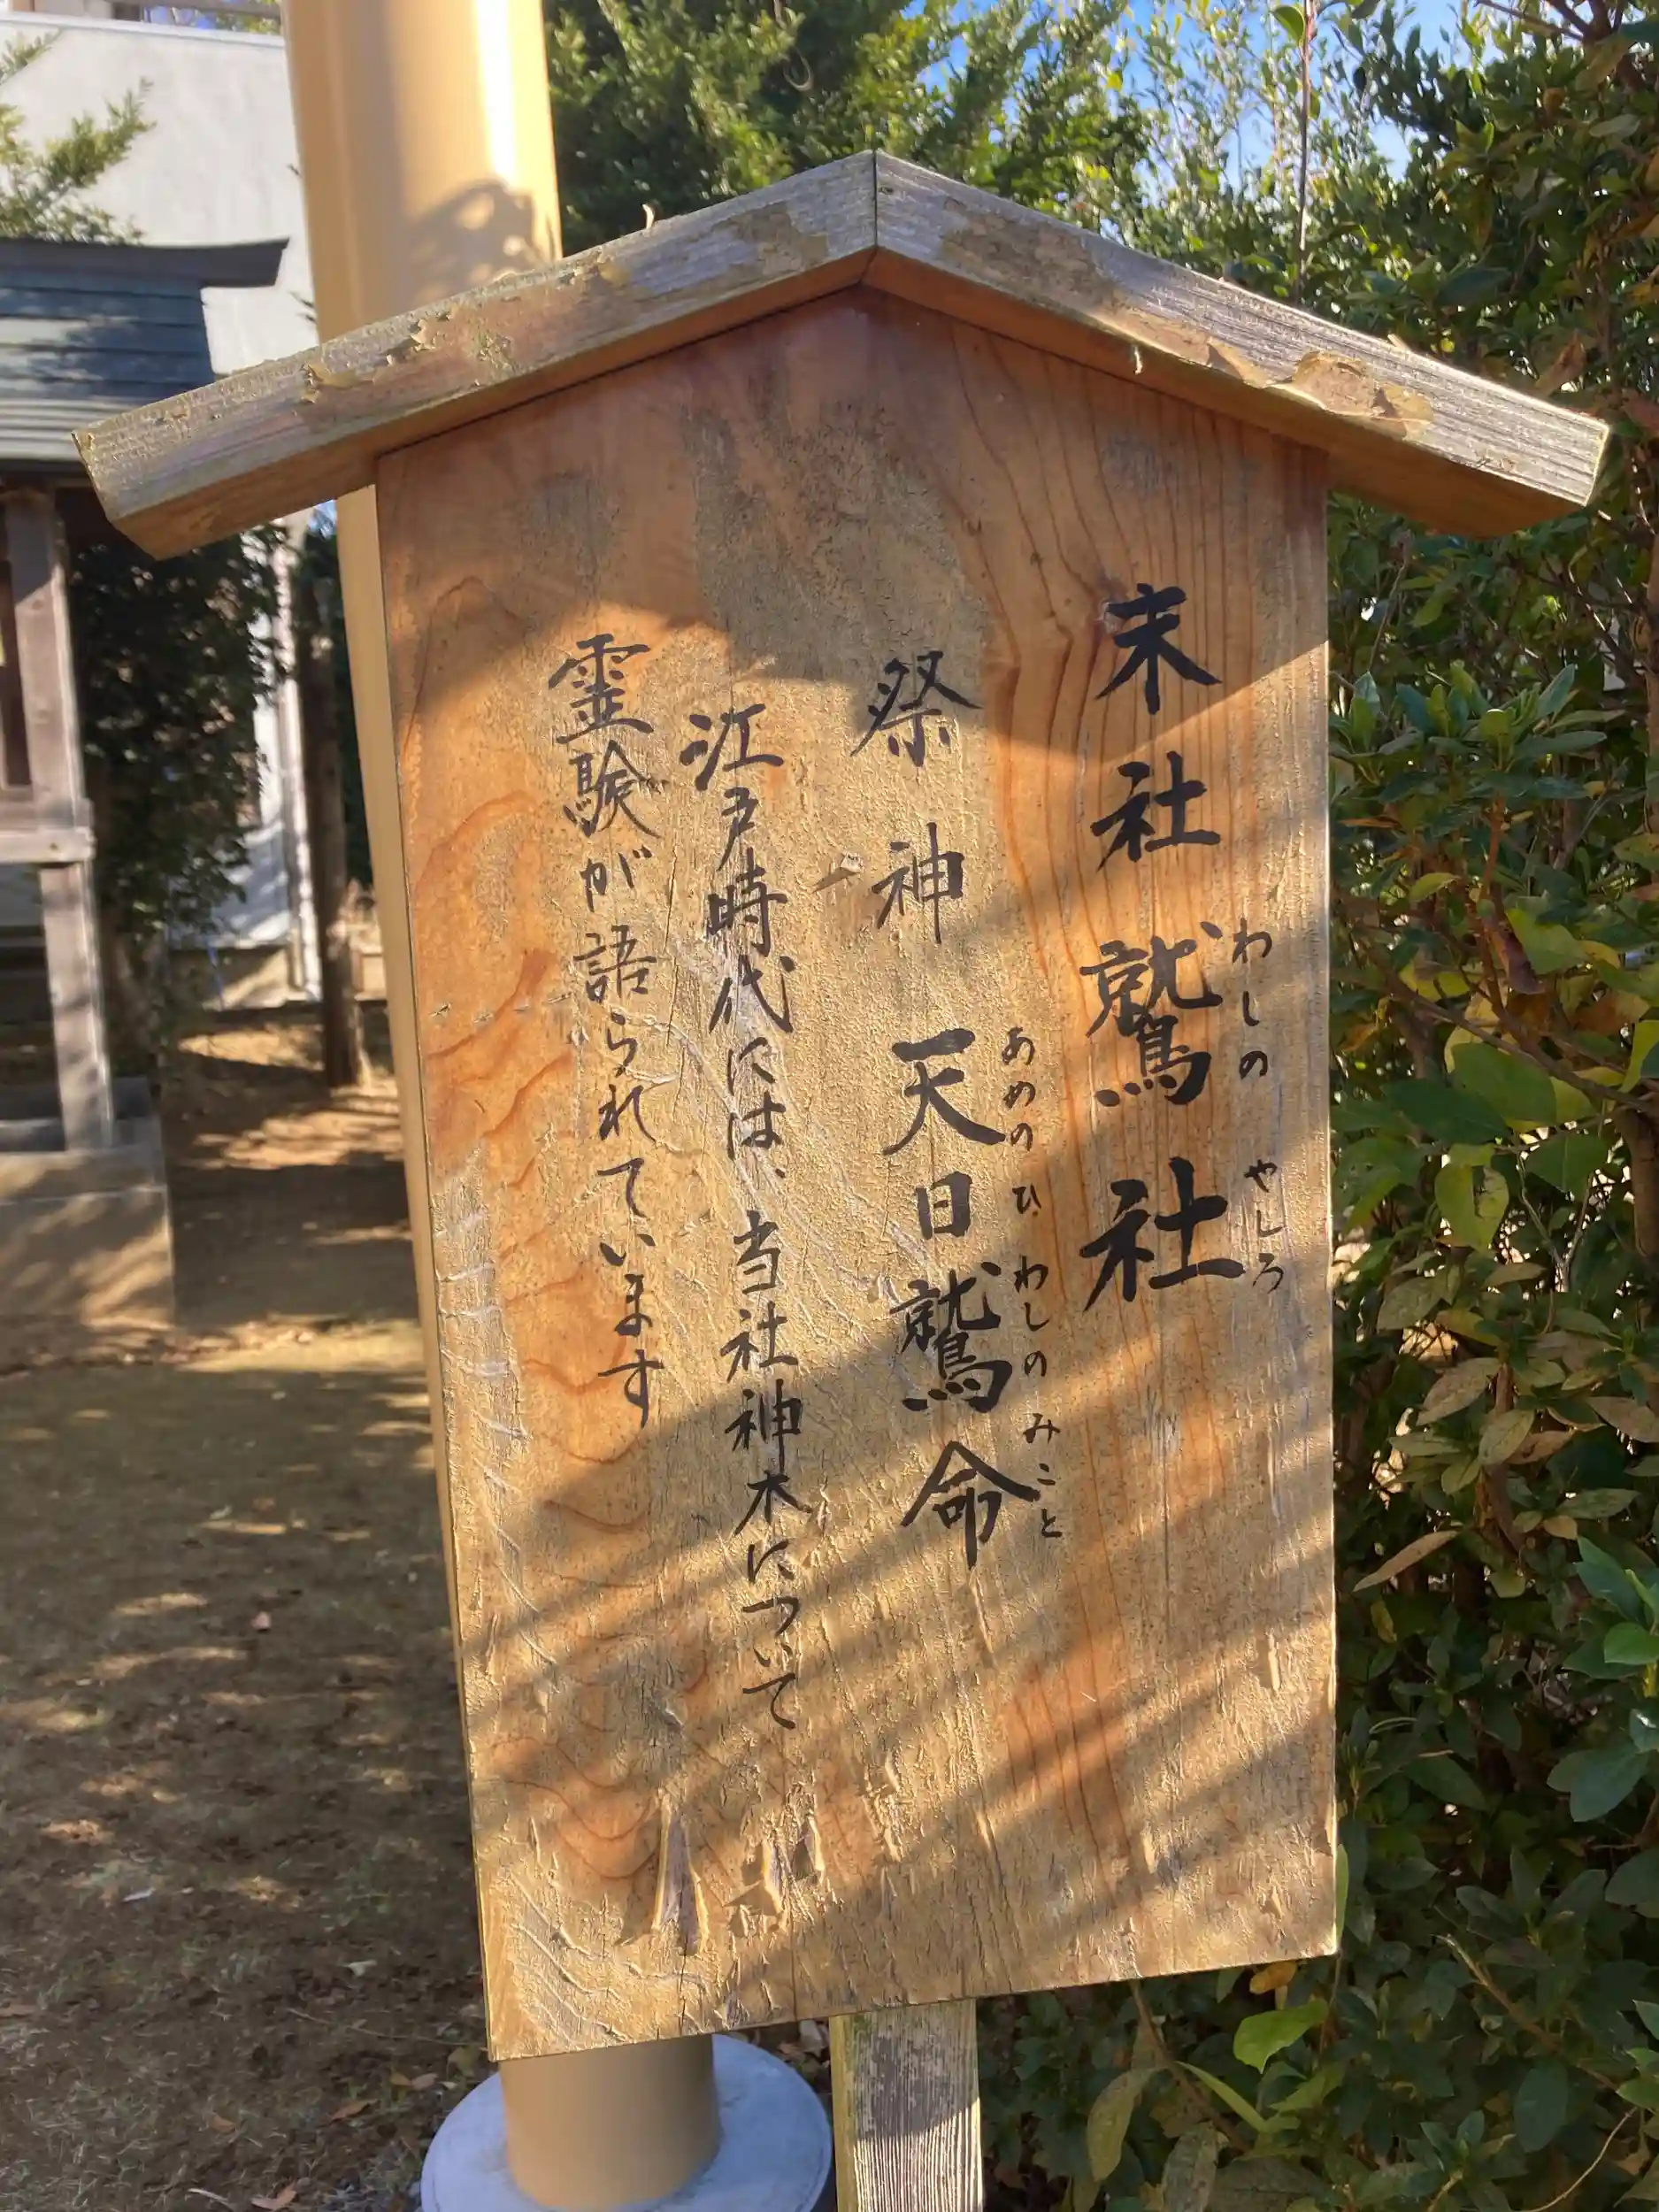 末社 鷲社
わしの やしろ
祭神 天日鷲命
あめのひわしのみこと
江戸時代には、当社神木について
霊験が語られています